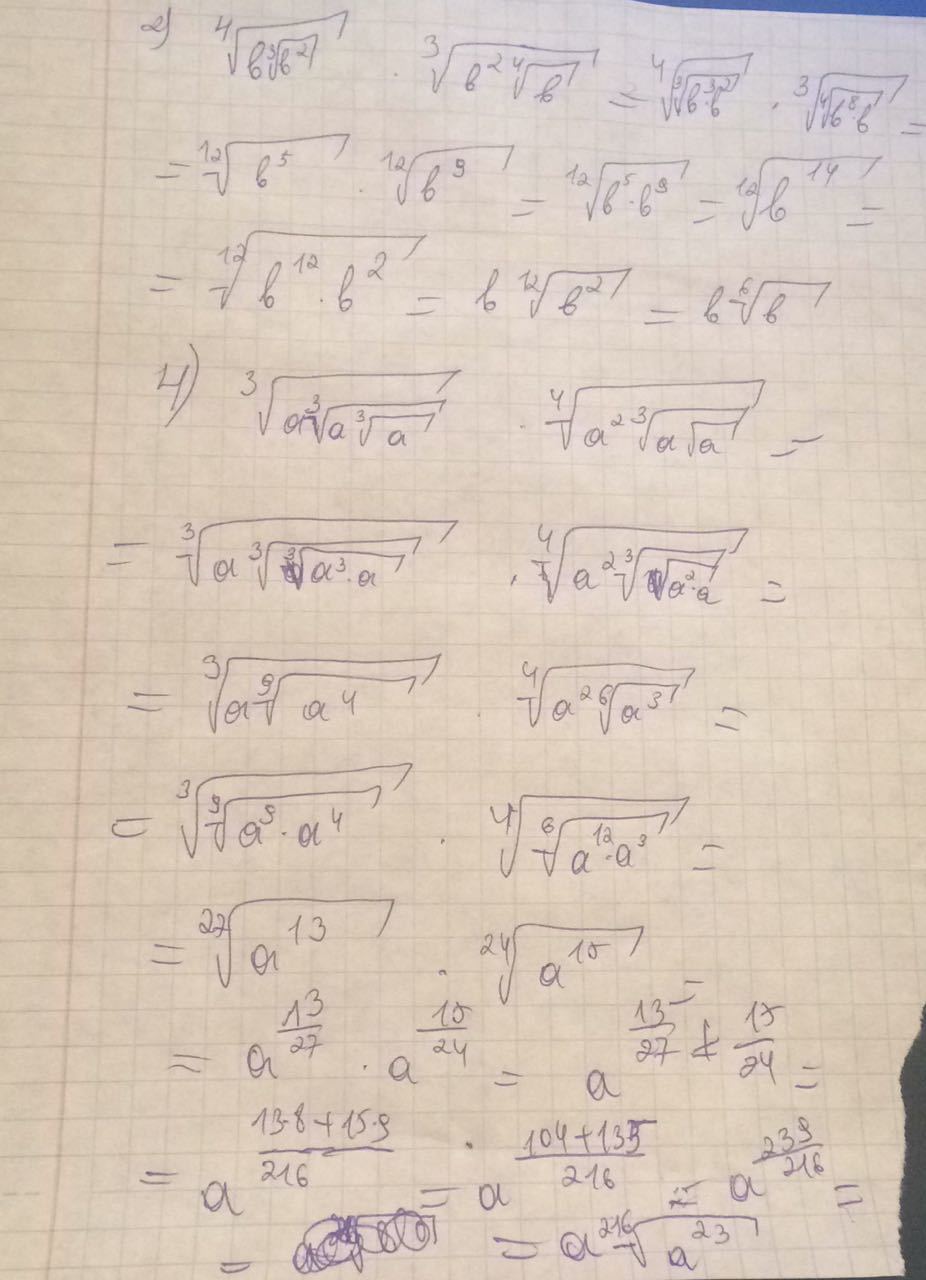 2) ⁴√(b∛(b²)) · ∛(b²⁴√b) = ⁴√(∛(b³·b²)) · ∛(⁴√(b⁸·b)) =
= ¹²√(b⁵) · ¹²√(b⁹) = ¹²√(b⁵·b⁹) = ¹²√(b¹⁴) =
= ¹²√(b¹²·b²) = b ¹²√(b²) = b ⁶√b
4) ∛(a∛(a∛a)) · ⁴√(a²∛(a√a)) =
= ∛(a∛(∛(a³·a))) · ⁴√(a²∛(√(a²·a))) =
= ∛(a ⁹√(a⁴)) · ⁴√(a² ⁶√(a³)) =
= ∛(⁹√(a⁹·a⁴)) · ⁴√(⁶√(a¹²·a³)) =
= ²⁷√(a¹³) · ²⁴√(a¹⁵) =
= a^(13/27) · a^(15/24) = a^(13/27 + 15/24) =
= a^((13·8+15·9)/216) = a^((104+135)/216) = a^(239/216) =
= = a ²¹⁶√(a²³)